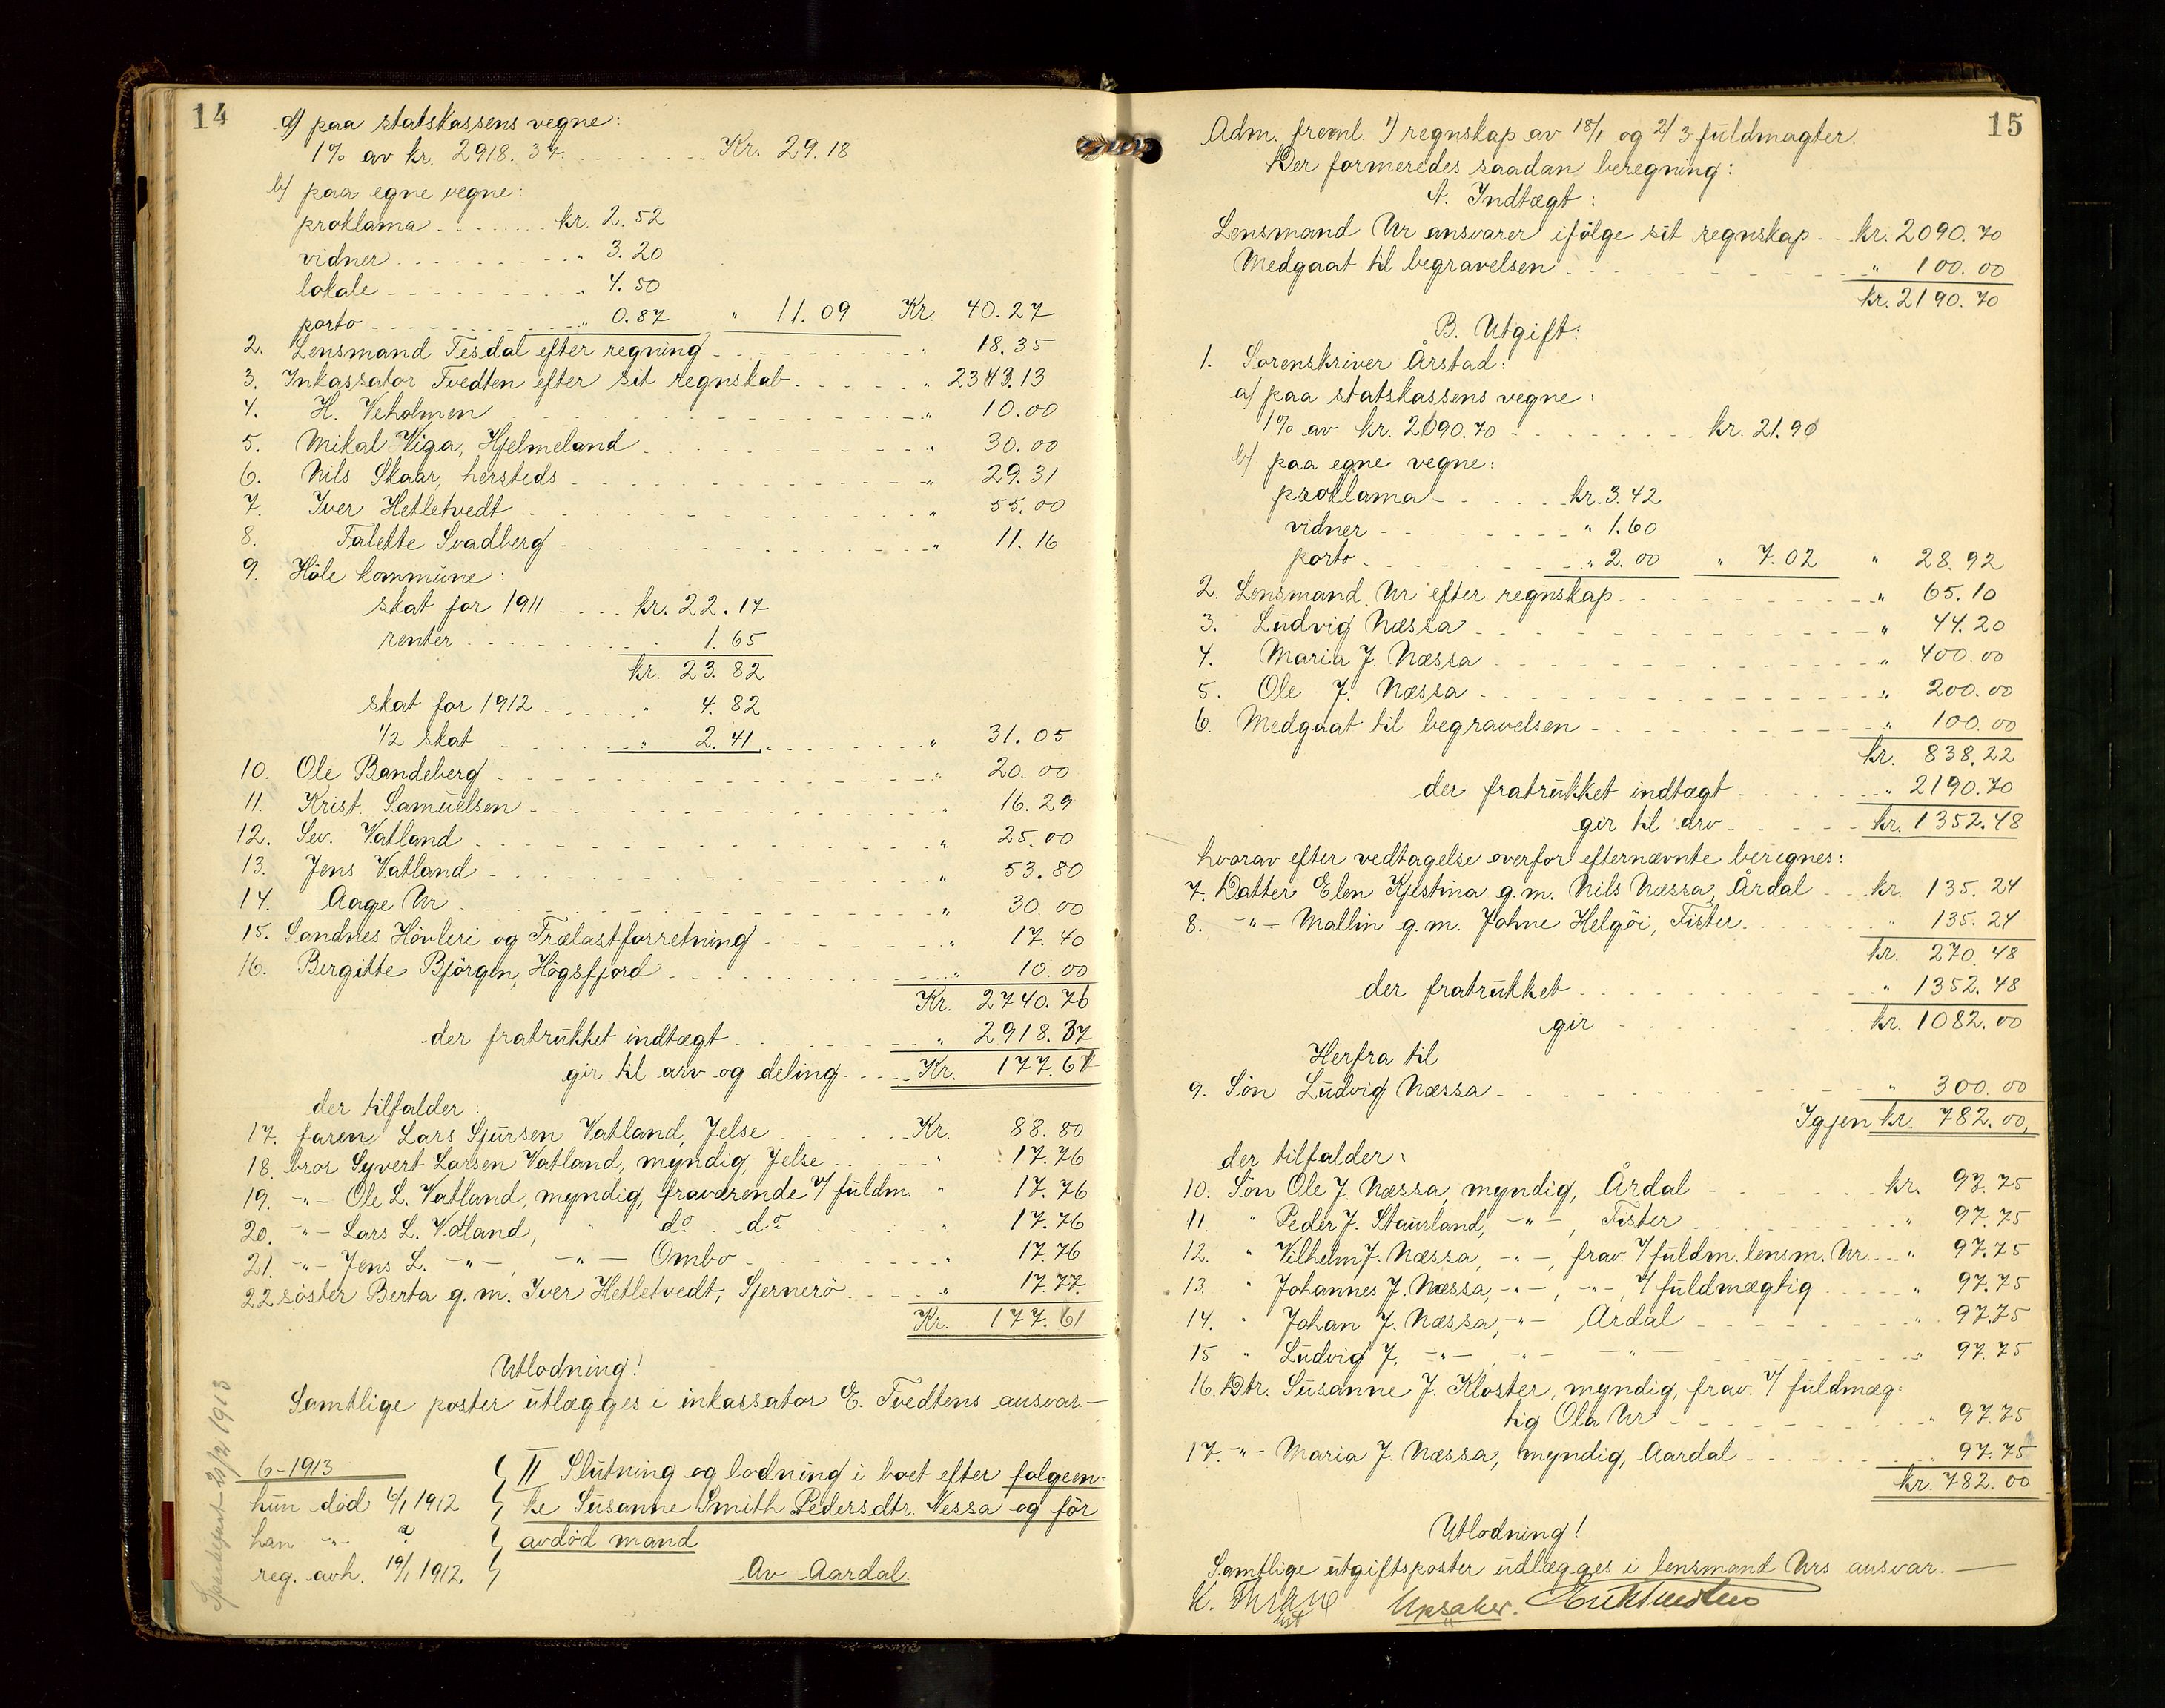 14
a) paa statskassens vegne:
1% av kr. 2918.37 Kr. 29.18
b) paa egne vegne:
proklama kr. 2.52
vidner " 3.20
lokale " 4.50
porto " 0.87 " 11.09 Kr. 40.27
2. Lensmand Tesdal efter regning " 18.35
3. Inkassator Tvedten efter sit regnskab " 2343.13
4. H. Veholmen " 10.00
5. Mikal Viga, Hjelmeland " 30.00
6. Nils Skaar, hersteds " 29.31
7. Iver Hetletvedt " 55.00
8. Talette Svadberg " 11.16
9. Höle kommune:
skat for 1911 kr. 22.17
renter 1.65
kr. 23.82
skat for 1912 " 4.82
1/2 skat " 2.41 " 31.05
10. Ole Bandeberg " 20.00
11. Krist. Samuelsen " 16.29
12. Sev. Vatland " 25.00
13. Jens Vatland " 53.80
14. Aage Ur " 30.00
15. Sandnes Hövleri og Trælastforretning " 17.40
16. Bergitte Bjørgen, Högsfjord " 10.00
Kr. 2740.76
der fratrukket indtægt " 2918.37
gir til arv og deling Kr. 177.61
der tilfalder:
17. faren Lars Sjursen Vatland, Jelse Kr. 88.80
18. bror Syvert Larsen Vatland, myndig, Jelse " 17.76
19. -"- Ole L. Vatland, myndig, fraværende v/ fuldm. " 17.76
20. -"- Lars L. Vatland, " do. do. 17.76
21. -"- Jens L. -"-, -"- Ombo " 17.76
22 söster Berta g.m. Iver Hetletvedt, Sjernerö " 17.77
Kr. 177.61
Utlodning!
Samtlige poster utlægges i inkassator E. Tvedtens ansvar.—
6-1913
hun död 6/1 1912
han -"- ?
reg. avh. 19/1 1912
II Slutning og lodning i boet efter folgeen-
ke Susanne Smith Pedersdtr. Nessa og før
avdöd mand
Av Aardal.
15
Adm. freml. 1) regnskap av 18/1 og 2/ 3 fuldmagter.
Der formeredes saadan beregning:
A. Indtægt:
Lensmand Ur ansvarer ifölge sit regnskap kr. 2090.70
Medgaat til begravelsen " 100.00
kr. 2190.70
B. Utgift:
1. Sorenskriver Årstad:
a) paa statskassens vegne:
1% av kr. 2090.70 kr. 21.90
b) paa egne vegne:
proklama kr. 3.42
vidner " 1.60
porto " 2.00 " 7.02 " 28.92
2. Lensmand Ur efter regnskap " 65.10
3. Ludvig Næssa " 44.20
4. Maria J. Næssa " 400.00
5. Ole J. Næssa " 200.00
6. Medgaat til begravelsen " 100.00
kr. 838.22
der fratrukket indtægt " 2190.70
gir til arv kr. 1352.48
hvorav efter vedtagelse overfor efternævnte beregnes:
7. Datter Elen Kjistina g.m. Nils Næssa, Årdal kr. 135.24
8. -"- Mallin g.m. Johne Helgöi, Fister " 135.24
kr. 270.48
der fratrukket " 1352.48
gir kr. 1082.00
Herfra til
9. Sön Ludvig Næssa " 300.00
Igjen kr. 782.00,
der tilfalder:
10. Sön Ole J. Næssa, myndig, Årdal kr. 97.75
11. " Peder J. Staurland, -"-, Fister " 97.75
12. " Vilhelm J. Næssa, -"-, frav. v/ fuldm. lensm. Ur " 97.75
13. " Johannes J. Næssa, -"-, -"-, v/ fuldmægtig " 97.75
14. " Johan J. Næssa, -"- Årdal " 97.75
15 " Ludvig J. -"-, -"- -"- " 97.75
16. Dtr. Susanne J. Kloster, myndig, frav. v/ fuldmæg-
tig Ola Ur " 97.75
17. -"- Maria J. Næssa, myndig, Aardal " 97.75
kr. 782.00
Utlodning!
Samtlige utgiftsposter udlægges i lensmand Urs ansvar.—